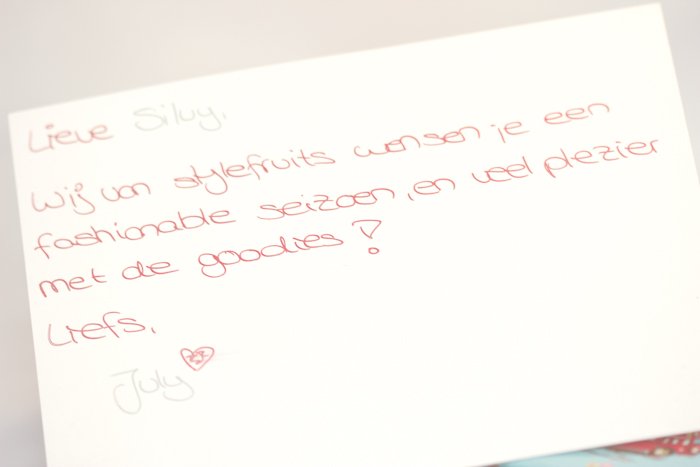 Lieve Silvy,
Wij van stylefruits wensen je een
fashionable seizoen, en veel plezier
met de goodies!
Liefs,
July